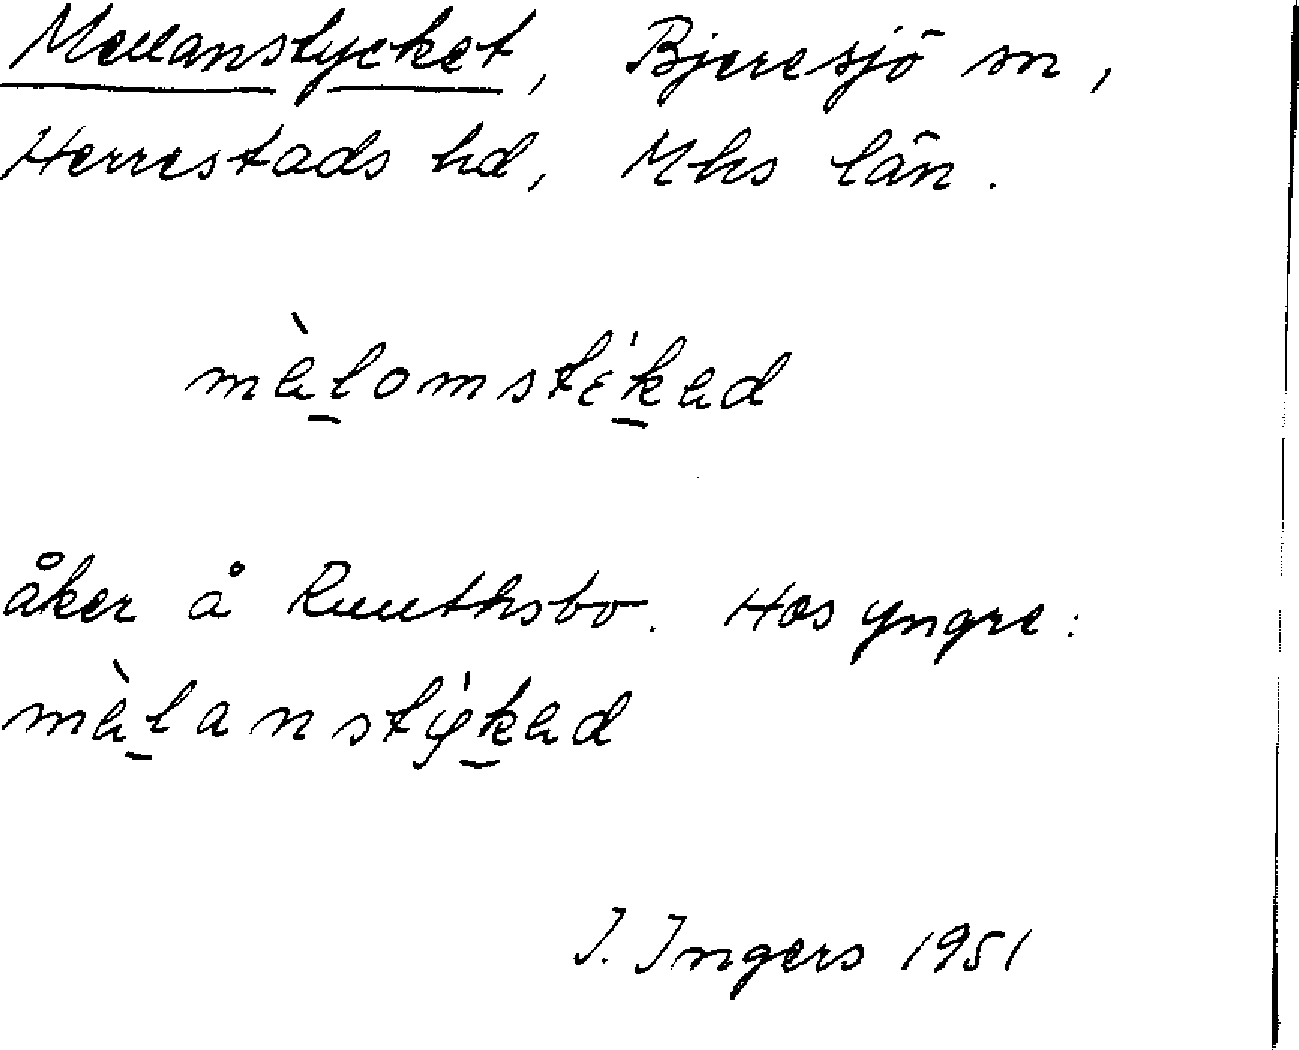 Mellanstycket, Bjeresjö sn,
Herrestads hd, Mhs län.
mèl̠omstɛ́k̠ad
åker å Ruuthsbo. Hos yngre:
mèl̠anstýk̠ad
I. Ingers 1951